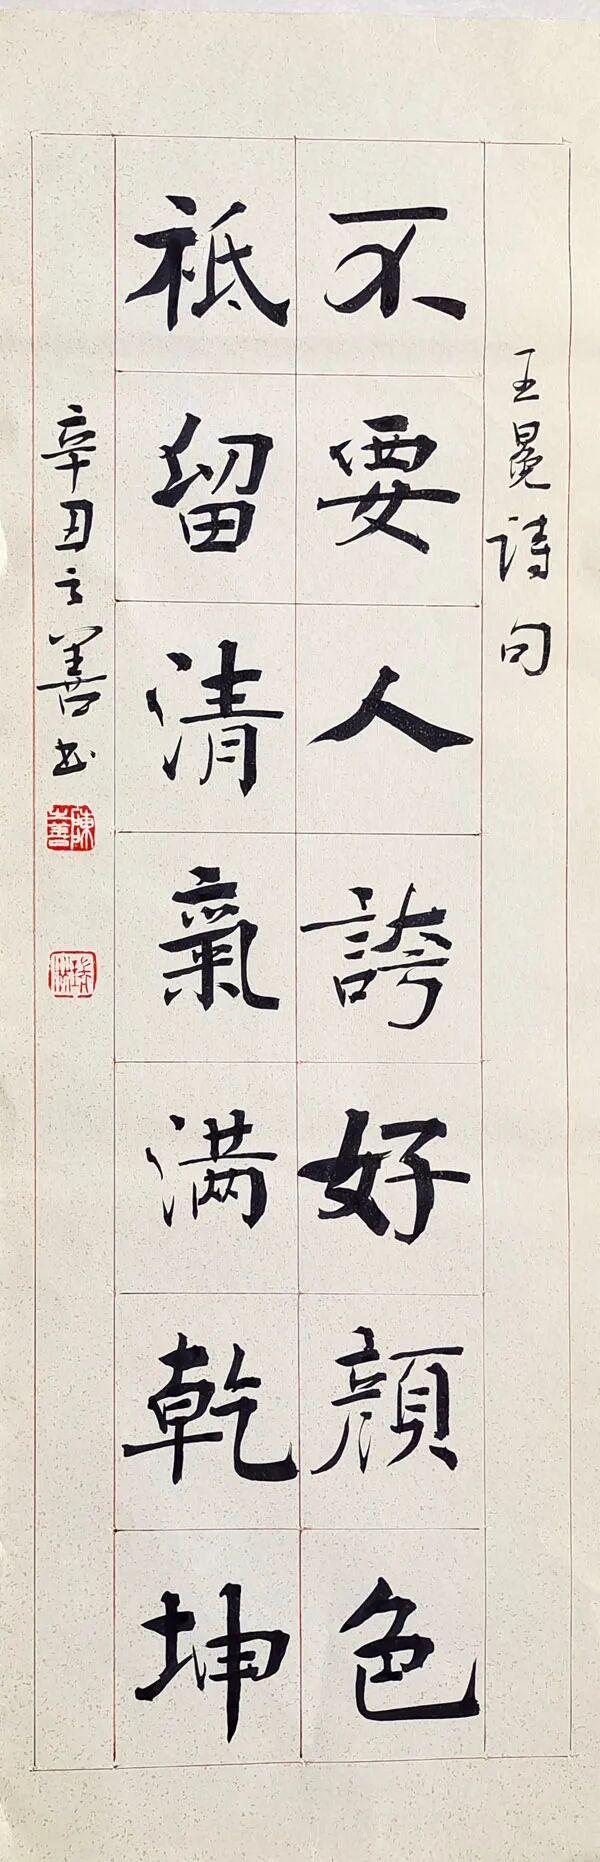 王冕詩句
不要人誇好顏色
祇留清氣满乾坤
辛丑之善书